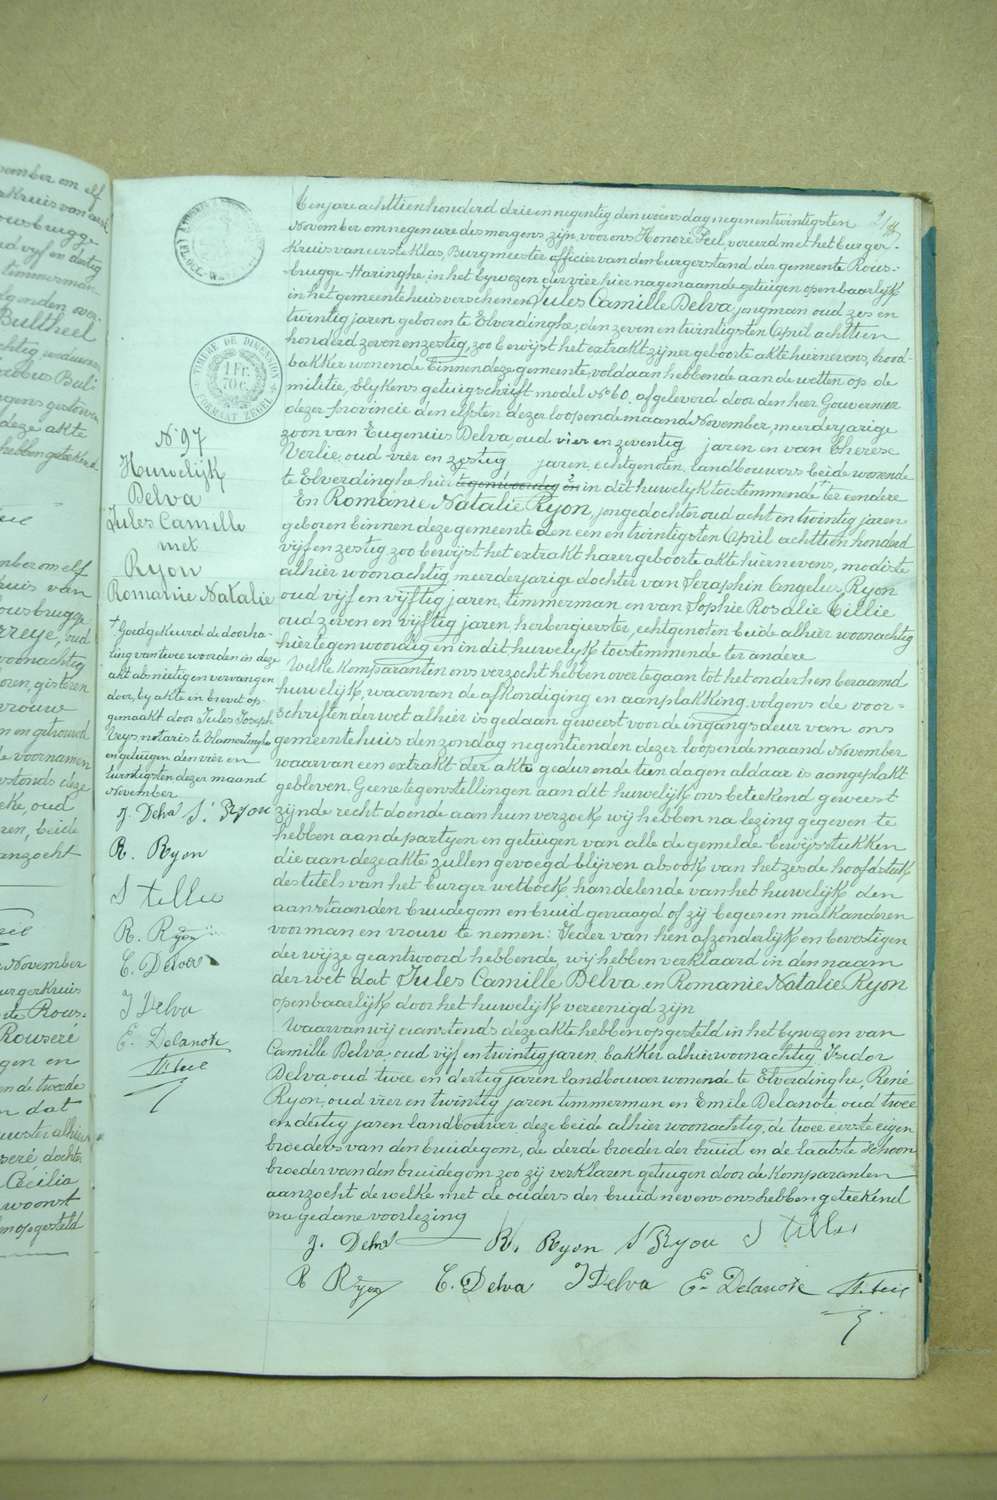 N° 97
Huwelijk
Delva
Jules Camille
met
Ryon
Romanie Natalie
+ Goedgekeurd de doorha-
ling van twee woorden in deze
akt als nietig en vervangen
door, by akte in brevet op-
gemaakt door Jules Joseph
notaris te Vlamertinghe
en getuigen den vier en
twintigsten dezer maand
November
J. Delva S. Ryon
R. Ryon
S tillie
R. Ryon
C. Delva
J Delva
E. Delanote
TIMBRE DE DIMENSION
1 Fr.
70 c.
FORMAT REGEL
Ten jare achttien honderd drie en negentig den woensdag negen en twintigsten
November om negen ure des morgens, zyn, voor ons Honoré Peel, vereerd met het burger-
kruis van eerste klas, Burgmeester officier van den burgerstand der gemeente Rous-
brugge-Haringhe, in het bywezen der vier hier nagenaamde getuigen openbaarlijk
in het gemeentehuis verschenen Jules Camille Delva, jongman oud zes en
twintig jaren geboren te Elverdinghe, den zeven en twintigsten April achttien
honderd zeven en zestig, zoo bewyst het extrakt zijner geboorte akte hiernevens, brood-
bakker wonende binnen deze gemeente, voldaan hebbende aan de wetten op de
militie, blykens getuigschrift model N° 60, afgeleverd door den heer Gouverneur
dezer provincie den elfden dezer loopende maand November, meerderjarige
zoon van Eugenius Delva, oud vier en zeventig jaren en van Therese
Verlie, oud vier en zestig jaren, echtgenoten, landbouwers beide wonende
te Elverdinghe hier tegenwoordig en in dit huwelijk toestemmende + ter eendere
En Romanie Natalie Ryon, jongedochter oud acht en twintig jaren
geboren binnen deze gemeente den een en twintigsten April achttien honderd
vijf en zestig zoo bewijst het extrakt harer geboorte akte hiernevens, modiste
alhier woonachtig, meerderjarige dochter van Seraphin Angelus Ryon
oud vijf en vijftig jaren, timmerman en van Sophie Rosalie Tillie
oud zeven en vijftig jaren herbergierster, echtgenoten beide alhier woonachtig
hier tegenwoordig en in dit huwelijk toestemmende ter andere
Welke komparanten ons verzocht hebben over te gaan tot het onder hen beraamd
huwelijk, waarvan de afkondiging en aanplakking volgens de voor-
schriften der wet alhier is gedaan geweest voor de ingangsdeur van ons
gemeentehuis den zondag negentienden dezer loopende maand November
waarvan een extrakt der akte gedurende tien dagen aldaar is aangeplakt
gebleven. Geene tegenstellingen aan dit huwelijk ons beteekend geweest
zijnde recht doende aan hun verzoek wij hebben na lezing gegeven te
hebben aan de partijen en getuigen van alle de gemelde bewijsstukken
die aan deze akte zullen gevoegd blijven alsook van het zesde hoofdstuk
des titels van het burger wetboek handelende van het huwelijk den
aanstaanden bruidegom en bruid gevraagd of zij begeeren malkanderen
voor man en vrouw te nemen: Ieder van hen afzonderlijk en bevestigen
der wijze geantwoord hebbende, wij hebben verklaard in den naam
der wet dat Jules Camille Delva en Romanie Natalie Ryon
openbaarlijk door het huwelijk vereenigd zijn
Waarvan wij aanstonds deze akte hebben opgesteld in het bywezen van
Camille Delva, oud vijf en twintig jaren, bakker alhier woonachtig, Isidor
Delva, oud twee en dertig jaren landbouwer wonende te Elverdinghe, René
Ryon, oud vier en twintig jaren timmerman en Emile Delanote, oud twee
en dertig jaren landbouwer deze beide alhier woonachtig, de twee eerste eigen
broeders van den bruidegom, de derde broeder der bruid en de laatste schoon
broeder van den bruidegom zoo zij verklaren getuigen door de komparanten
aanzocht de welke met de ouders der bruid nevens ons hebben geteekend
na gedane voorlezing
J. Delva R. Ryon S Ryon S tillie
R Ryon C. Delva J Delva E. Delanote